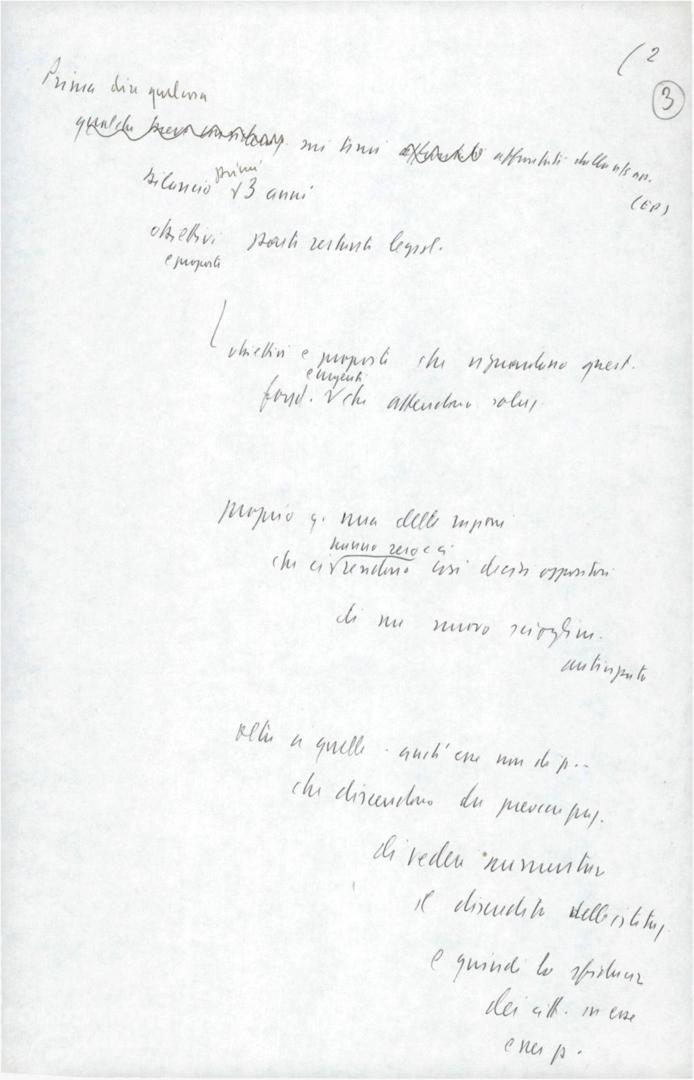 ( 2
3
Prima dire qualcosa
qualche sui temi affrontati dalla
(EP)
bilancio primi 3 anni
obiettivi restanti legisl.
e proposte
obiettivi e proposte che riguardano quest.
e urgenti
fond. che attendono soluz.
proprio q. una delle ragioni
hanno reso e ci
che ci rendono così decisi oppositori
di un nuovo scioglim.
anticipato
oltre a quelle - anch'esse non di p..
che discendono da preoccupaz.
di vedere aumentare
il discredito delle istituz.
e quindi la sfiducia
dei citt. in esse
e nei p.